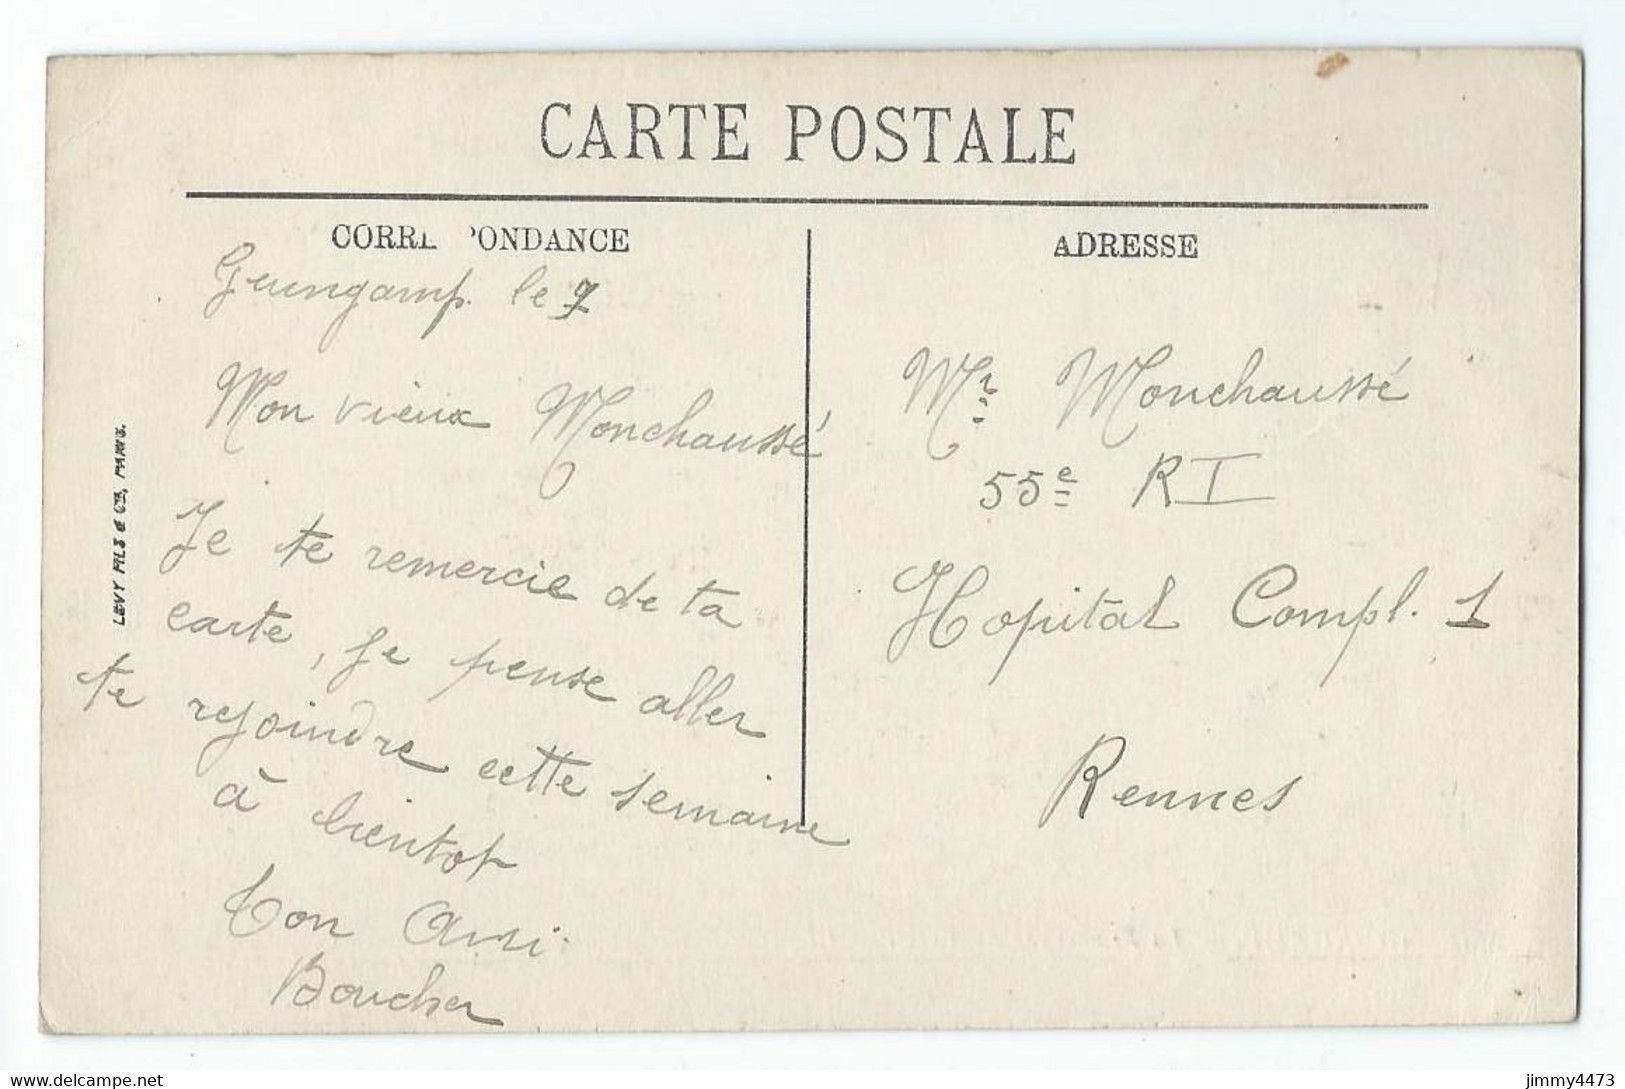 CARTE POSTALE
CORRE PONDANCE
Guingamp. le 7
Mon vieux Monchaussé
Je te remercie de ta
carte, je pense aller
te rejoindre cette semaine
à bientot
Ton Ami.
Boucher
LEVY FILS & Cie, PARIS.
ADRESSE
Mr Monchaussé
55e RI
Hopital Compl. 1
Rennes
www.delcampe.net
jimmy4473